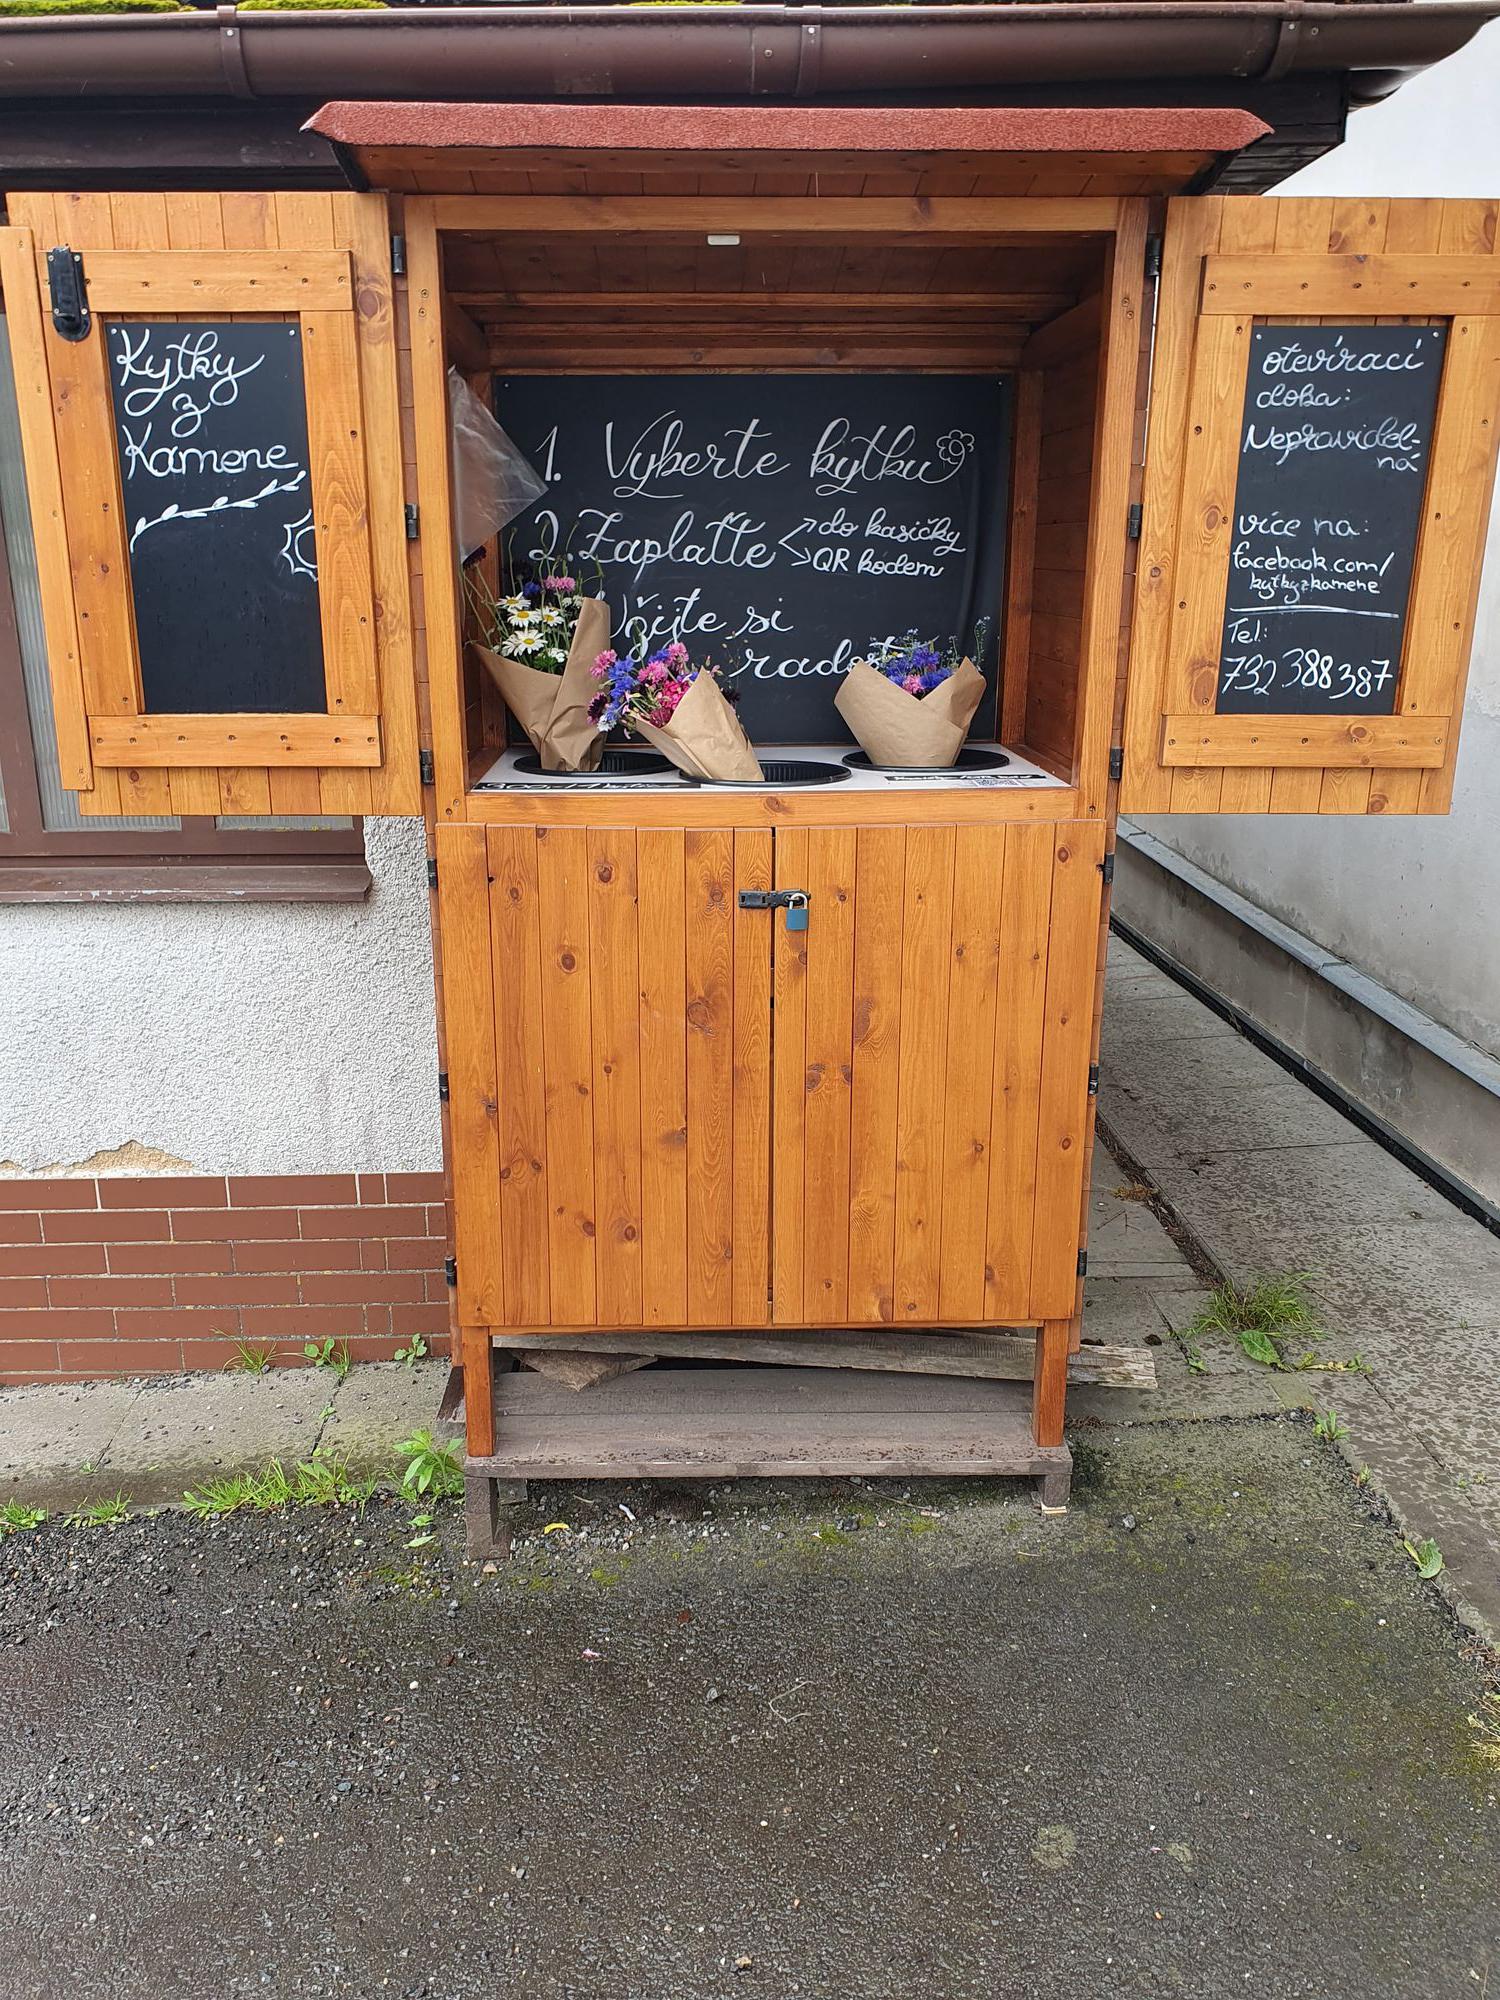 Kytky
z
Kamene
1. Vyberte kytku
2. Zaplaťte do kasičky
QR kódem
Užijte si
otevírací
doba:
Nepravidel-
ná
více na:
facebook.com/
kytkyzkamene
Tel:
732 388 387